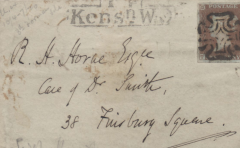 Kensn W
POSTAGE
R. H. Horne Esqre
Care of Dr Smith,
38 Finsbury Square.